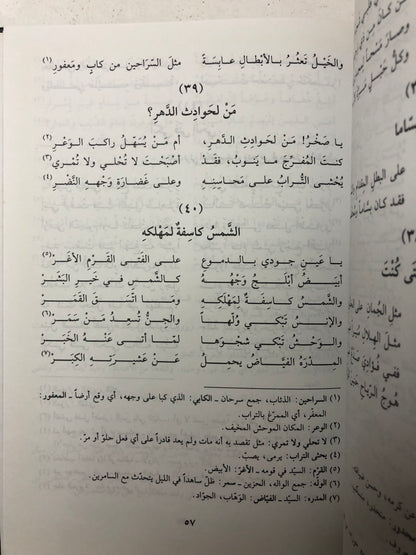 والخَيْلُ تَعثُرُ بالأَبْطالِ عابِسَةً مثلَ السّراحينِ من كابٍ ومَعفُورِ (١)
(٣٩)
مَنْ لحَوادِثِ الدَّهرِ؟
يا صَخْرُ! مَنْ لحَوادِثِ الدّهرِ، أم مَنْ يُسَهّلُ راكبَ الوَعْرِ (٢)
كنتَ المُفَرّجَ ما يَنوبُ، فقَدْ أصْبَحْتَ لا تُحْلي ولا تُمْري (٣)
يُحْثى التُّرابُ على مَحاسِنِهِ وعلى غَضارَةِ وَجْهِهِ النَّضْرِ (٤)
(٤٠)
الشَّمسُ كاسِفةٌ لمَهْلكِهِ
يا عَينِ جودي بالدموعِ على الفَتى القَرْمِ الأغَرّ (٥)
أبْيَضُ أبْلَجُ وَجْهُهُ كالشَّمسِ في خَيرِ البَشَرْ
والشَّمسُ كاسِفَةٌ لمَهْلكِهِ وما اتّسَقَ القَمَرْ
والإنسُ تَبكي وُلَّهاً والجِنُّ تُسعِدُ مَنْ سَمَرْ (٦)
والوَحْشُ تَبْكي شَجْوَها لمّا أتى عَنْهُ الخَبَرْ
المِدْرَهُ الفَيّاضُ يحمِلُ عَنْ عَشيرَتِهِ الكِبَرْ (٧)
(١) السراحين: الذئاب، جمع سرحان ـ الكابي: الذي كبا على وجهه، أي وقع أرضاً ـ المعفور:
المعفّر، أي الممرّغ بالتراب.
(٢) الوعر: المكان الموحش المخيف.
(٣) لا تحلي ولا تمري: مثل تقصد به أنه مات ولم يعد قادراً على أي فعل حلوٍ أو مرّ.
(٤) يحثى التراب: يرمى، يصبّ.
(٥) القرْم: السيّد في قومه ـ الأغرّ: الأبيض.
(٦) الولّه: جمع الواله، الحزين ـ سمر: ظل ساهداً في الليل يتحدّث مع السامرين.
(٧) المدره: السيّد ـ الفيّاض: الوَهّاب، الجوّاد.
٥٧
على البطل
فقد كان بسّاماً
مثل الجُمان على
مثلَ الهلالِ
ففي فُؤادي
هوجُ الرّياحِ